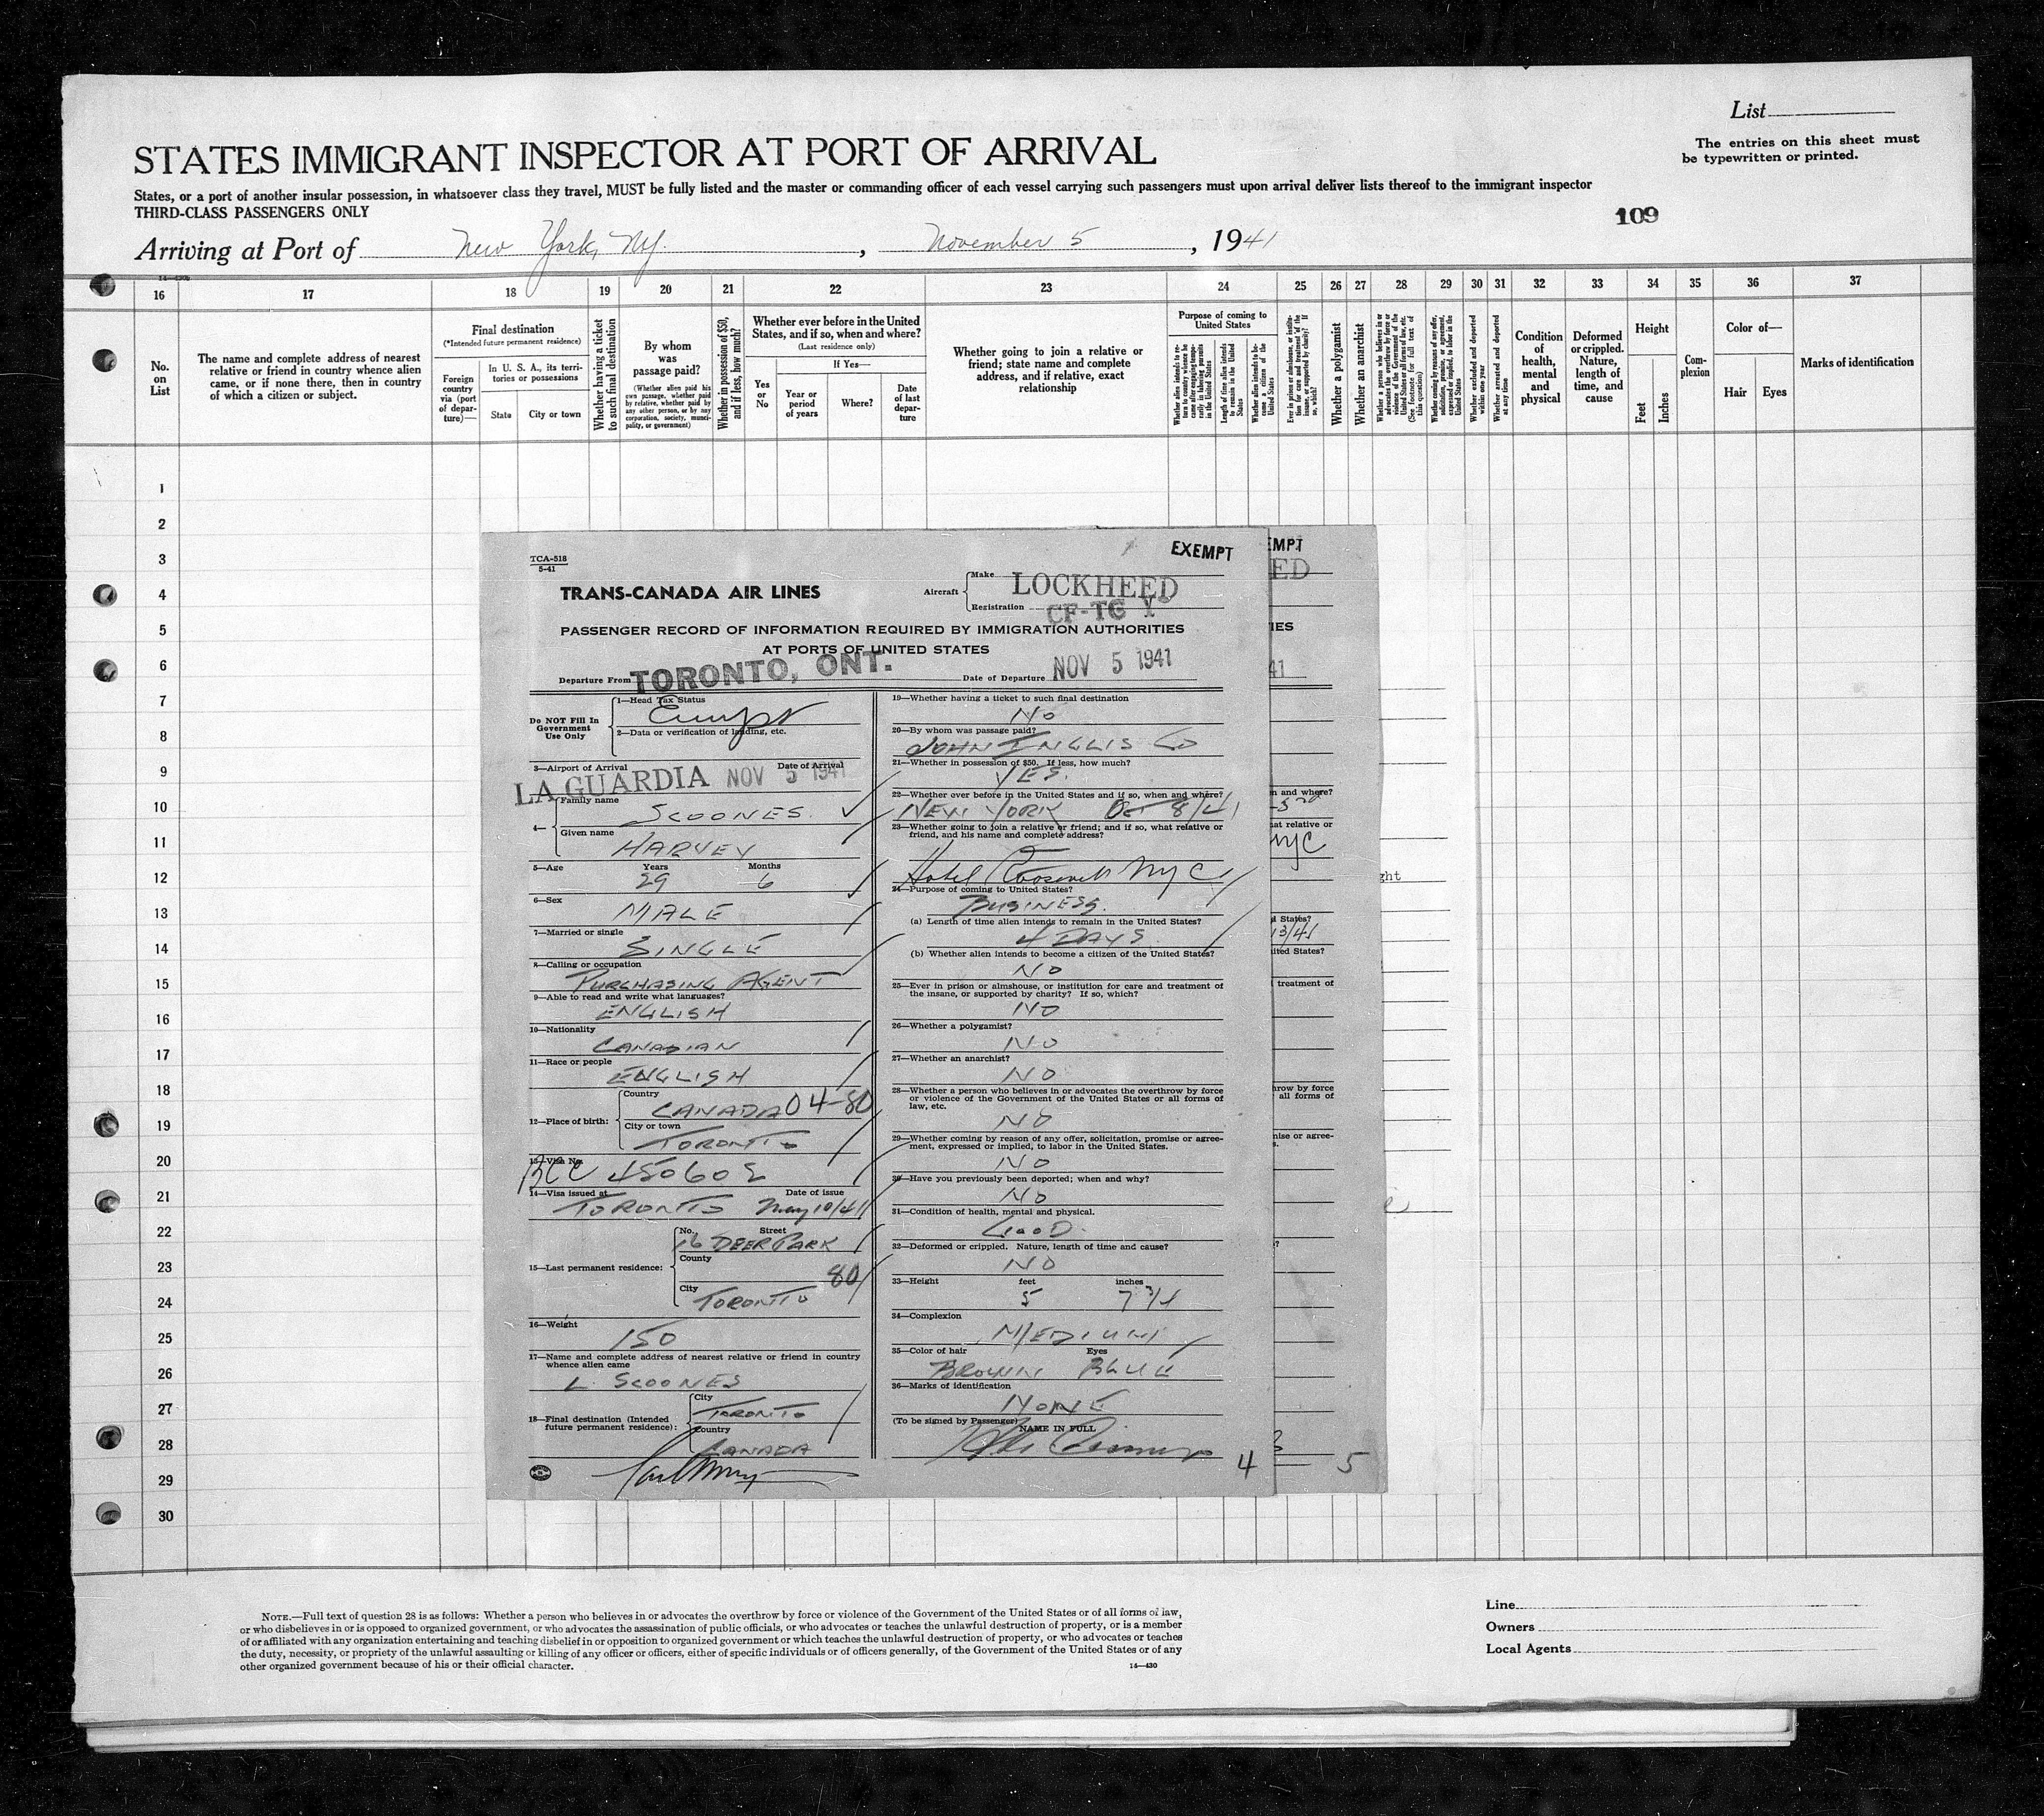 List
The entries on this sheet must
be typewritten or printed.
STATES IMMIGRANT INSPECTOR AT PORT OF ARRIVAL
States, or a port of another insular possession, in whatsoever class they travel, MUST be fully listed and the master or commanding officer of each vessel carrying such passengers must upon arrival deliver lists thereof to the immigrant inspector
THIRD-CLASS PASSENGERS ONLY
109
Arriving at Port of New York, NY. , November 5 , 1941
16 17 18 19 20 21 22 23 24 25 26 27 28 29 30 31 32 33 34 35 36 37
No.
on
List
The name and complete address of nearest
relative or friend in country whence alien
came, or if none there, then in country
of which a citizen or subject.
Final destination
(*Intended future permanent residence)
Foreign
country
via (port
of depar-
ture)—
In U. S. A., its terri-
tories or possessions
State City or town
Whether having a ticket
to such final destination
By whom
was
passage paid?
(Whether alien paid his
own passage, whether paid
by relative, whether paid by
any other person, or by any
corporation, society, munici-
pality, or government)
Whether in possession of $50,
and if less, how much?
Whether ever before in the United
States, and if so, when and where?
(Last residence only)
Yes
or
No
If Yes—
Year or
period
of years
Where?
Date
of last
depar-
ture
Whether going to join a relative or
friend; state name and complete
address, and if relative, exact
relationship
Purpose of coming to
United States
Length of time alien intends
to remain in the United
States
Whether alien intends to be-
come a citizen of the
United States
Whether a polygamist
Whether an anarchist
Whether excluded and deported
within one year
Whether arrested and deported
at any time
Condition
of
health,
mental
and
physical
Deformed
or crippled.
Nature,
length of
time, and
cause
Height
Feet
Inches
Com-
plexion
Color of—
Hair Eyes
Marks of identification
1
2
3
4
5
6
7
8
9
10
11
12
13
14
15
16
17
18
19
20
21
22
23
24
25
26
27
28
29
30
TCA-518
5-41
EXEMPT
TRANS-CANADA AIR LINES
Aircraft
Make LOCKHEED
Registration CF-TG Y
PASSENGER RECORD OF INFORMATION REQUIRED BY IMMIGRATION AUTHORITIES
AT PORTS OF UNITED STATES
Departure From TORONTO, ONT. Date of Departure NOV 5 1941
Do NOT Fill In
Government
Use Only
1—Head Tax Status
Exempt
2—Data or verification of landing, etc.
3—Airport of Arrival Date of Arrival
LA GUARDIA NOV 5 1941
4—
Family name
SCOONES
Given name
HARVEY
5—Age Years Months
29 6
6—Sex
MALE
7—Married or single
SINGLE
8—Calling or occupation
PURCHASING AGENT
9—Able to read and write what languages?
ENGLISH
10—Nationality
CANADIAN
11—Race or people
ENGLISH
12—Place of birth:
Country
CANADA 04-80
City or town
TORONTO
13—Visa No.
BCC 450602
14—Visa issued at Date of issue
TORONTO May 10/41
15—Last permanent residence:
No. Street
16 DEER PARK
County
80
City
TORONTO
16—Weight
150
17—Name and complete address of nearest relative or friend in country
whence alien came
L. SCOONES
18—Final destination (Intended
future permanent residence):
City
TORONTO
Country
CANADA
19—Whether having a ticket to such final destination
NO
20—By whom was passage paid?
JOHN INGLIS CO
21—Whether in possession of $50. If less, how much?
YES.
22—Whether ever before in the United States and if so, when and where?
NEW YORK Oct 8/41
23—Whether going to join a relative or friend; and if so, what relative or
friend, and his name and complete address?
Hotel Roosevelt NYC
24—Purpose of coming to United States?
BUSINESS.
(a) Length of time alien intends to remain in the United States?
4 DAYS
(b) Whether alien intends to become a citizen of the United States?
NO
25—Ever in prison or almshouse, or institution for care and treatment of
the insane, or supported by charity? If so, which?
NO
26—Whether a polygamist?
NO
27—Whether an anarchist?
NO
28—Whether a person who believes in or advocates the overthrow by force
or violence of the Government of the United States or all forms of
law, etc.
NO
29—Whether coming by reason of any offer, solicitation, promise or agree-
ment, expressed or implied, to labor in the United States.
NO
30—Have you previously been deported; when and why?
NO
31—Condition of health, mental and physical.
GOOD
32—Deformed or crippled. Nature, length of time and cause?
NO
33—Height feet inches
5 7 3/4
34—Complexion
MEDIUM
35—Color of hair Eyes
BROWN BLUE
36—Marks of identification
NONE
(To be signed by Passenger)
NAME IN FULL
4
EMPT
ED
IES
41
n and where?
at relative or
NYC
d States?
13/41
ited States?
treatment of
hrow by force
all forms of
mise or agree-
s.
?
5
ght
NOTE.—Full text of question 28 is as follows: Whether a person who believes in or advocates the overthrow by force or violence of the Government of the United States or of all forms of law,
or who disbelieves in or is opposed to organized government, or who advocates the assassination of public officials, or who advocates or teaches the unlawful destruction of property, or is a member
of or affiliated with any organization entertaining and teaching disbelief in or opposition to organized government or which teaches the unlawful destruction of property, or who advocates or teaches
the duty, necessity, or propriety of the unlawful assaulting or killing of any officer or officers, either of specific individuals or of officers generally, of the Government of the United States or of any
other organized government because of his or their official character.
14—430
Line
Owners
Local Agents